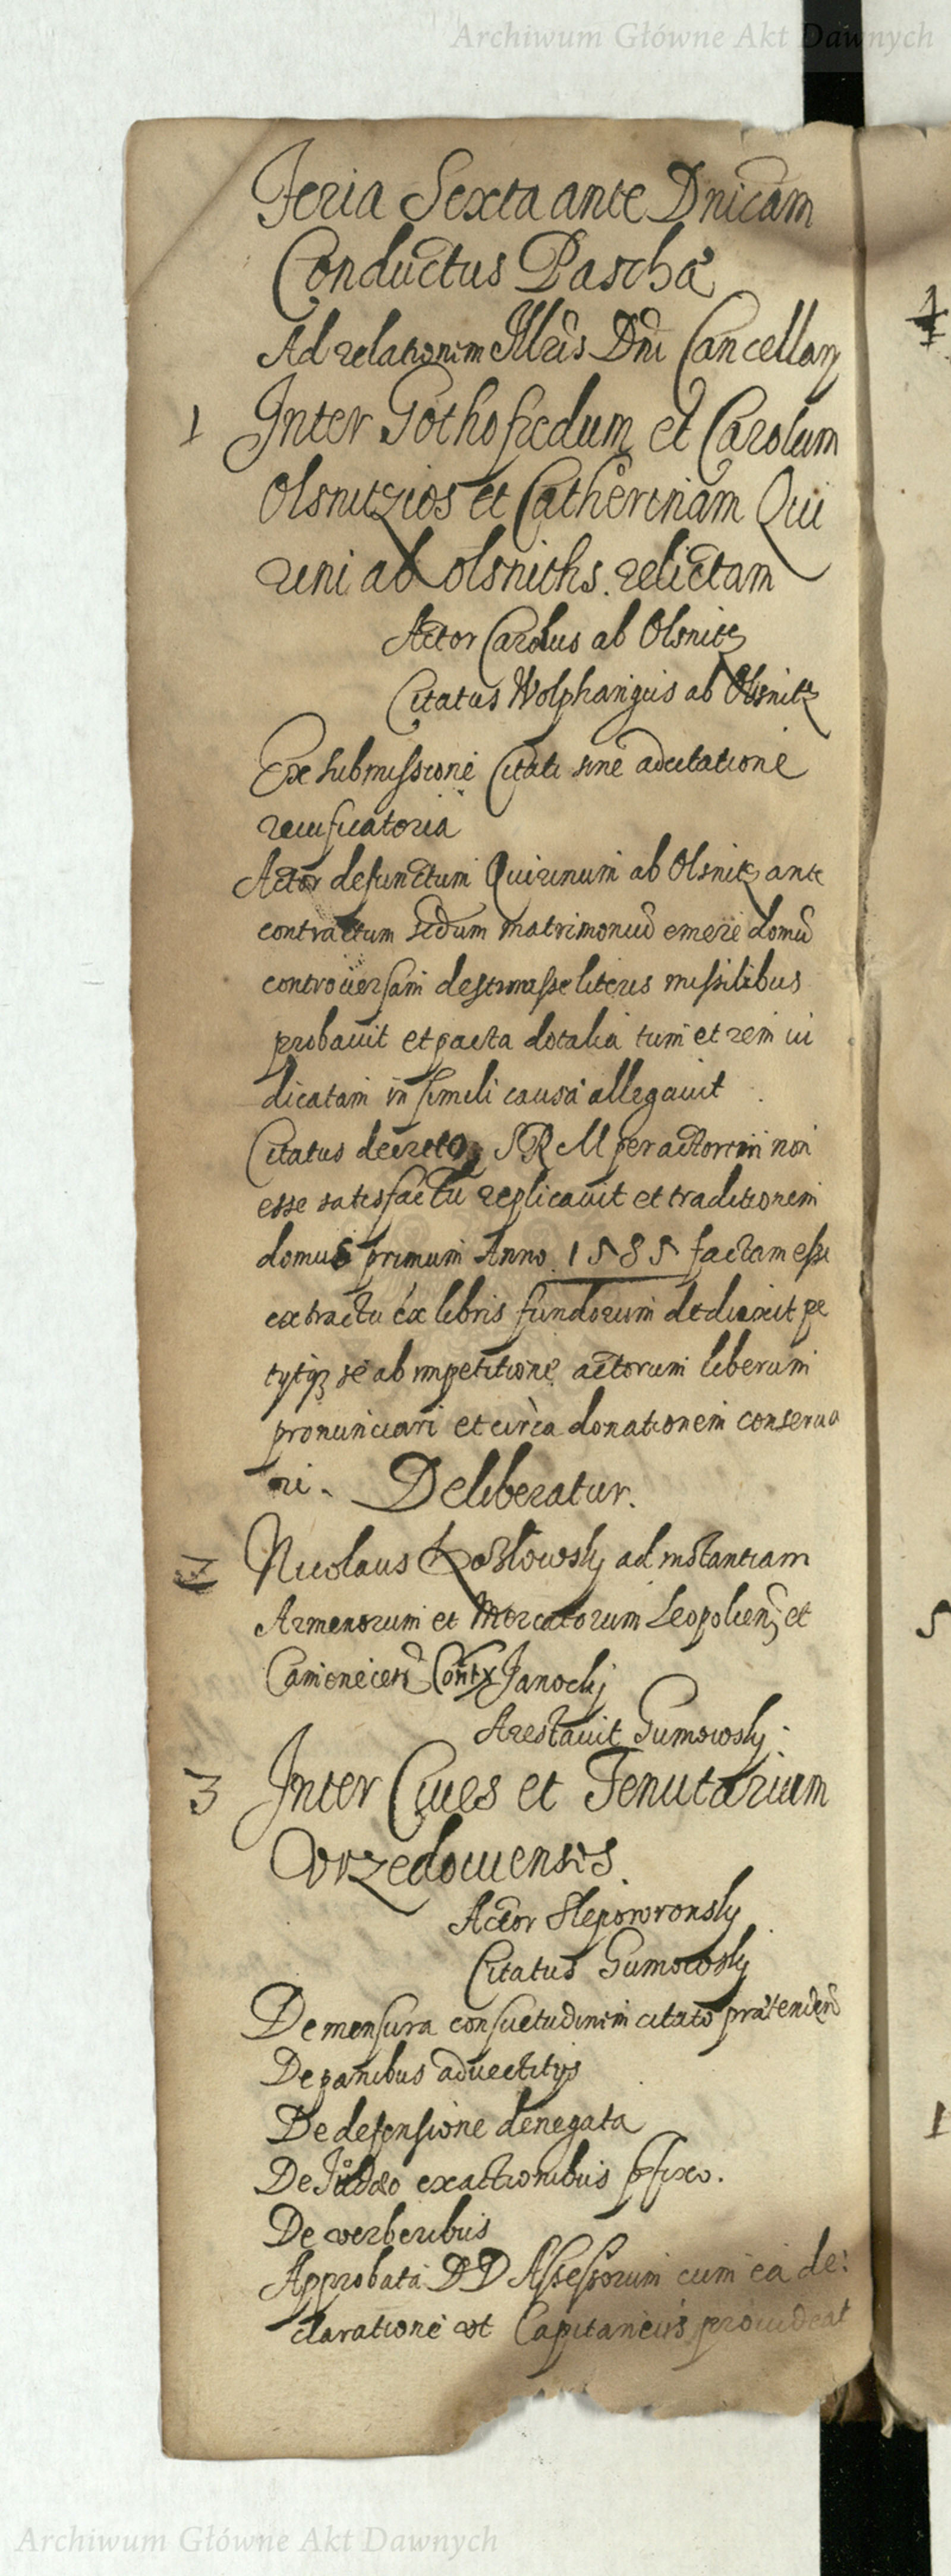 Archiwum Główne Akt Dawnych
Feria Sexta ante Dnicam
Conductus Pascha
Ad relationem Illris Dni Cancellarij
1 Inter Gothofredum et Carolum
Olsnitzios et Catherinam Qui
rini ab Olsniths. relictam
Actor Carolus ab Olsnitz
Citatus Wolphangus ab Olsnitz
Ex submissione Citati sine adcitatione
Actor defunctum Quirinum ab Olsnitz ante
contractum matrimoniu emere domu
controuersam destinasse literis missilibus
probauit et pacta dotalia tum et rem iu
dicatam in simili causa allegauit
Citatus decreto SRM per actorem non
esse satisfactu replicauit et traditionem
domus primum Anno 1585 factam esse
extractu ex libris fundorum deduxit pe
tytq se ab impetitione actorum liberum
pronunciari et circa donationem conserua
ri. Deliberatur.
2 Nicolaus Kozlowsky ad instantiam
Armenorum et Mercatorum Leopolien et
Camenecen Contx Janocky
Arestauit Gumowsky.
3 Inter Ciues et Tenutarium
Vrzedouiensis
Actor Slepowronsky
Citatus Gumowsky
De mensura consuetudinem citato prætenden
De panibus aduectitys
De defensione denegata
De Judæo exactionibus
De verberibus
Approbata DD Assessorum cum ea de:
claratione vt Capitaneus prouideat
Archiwum Główne Akt Dawnych